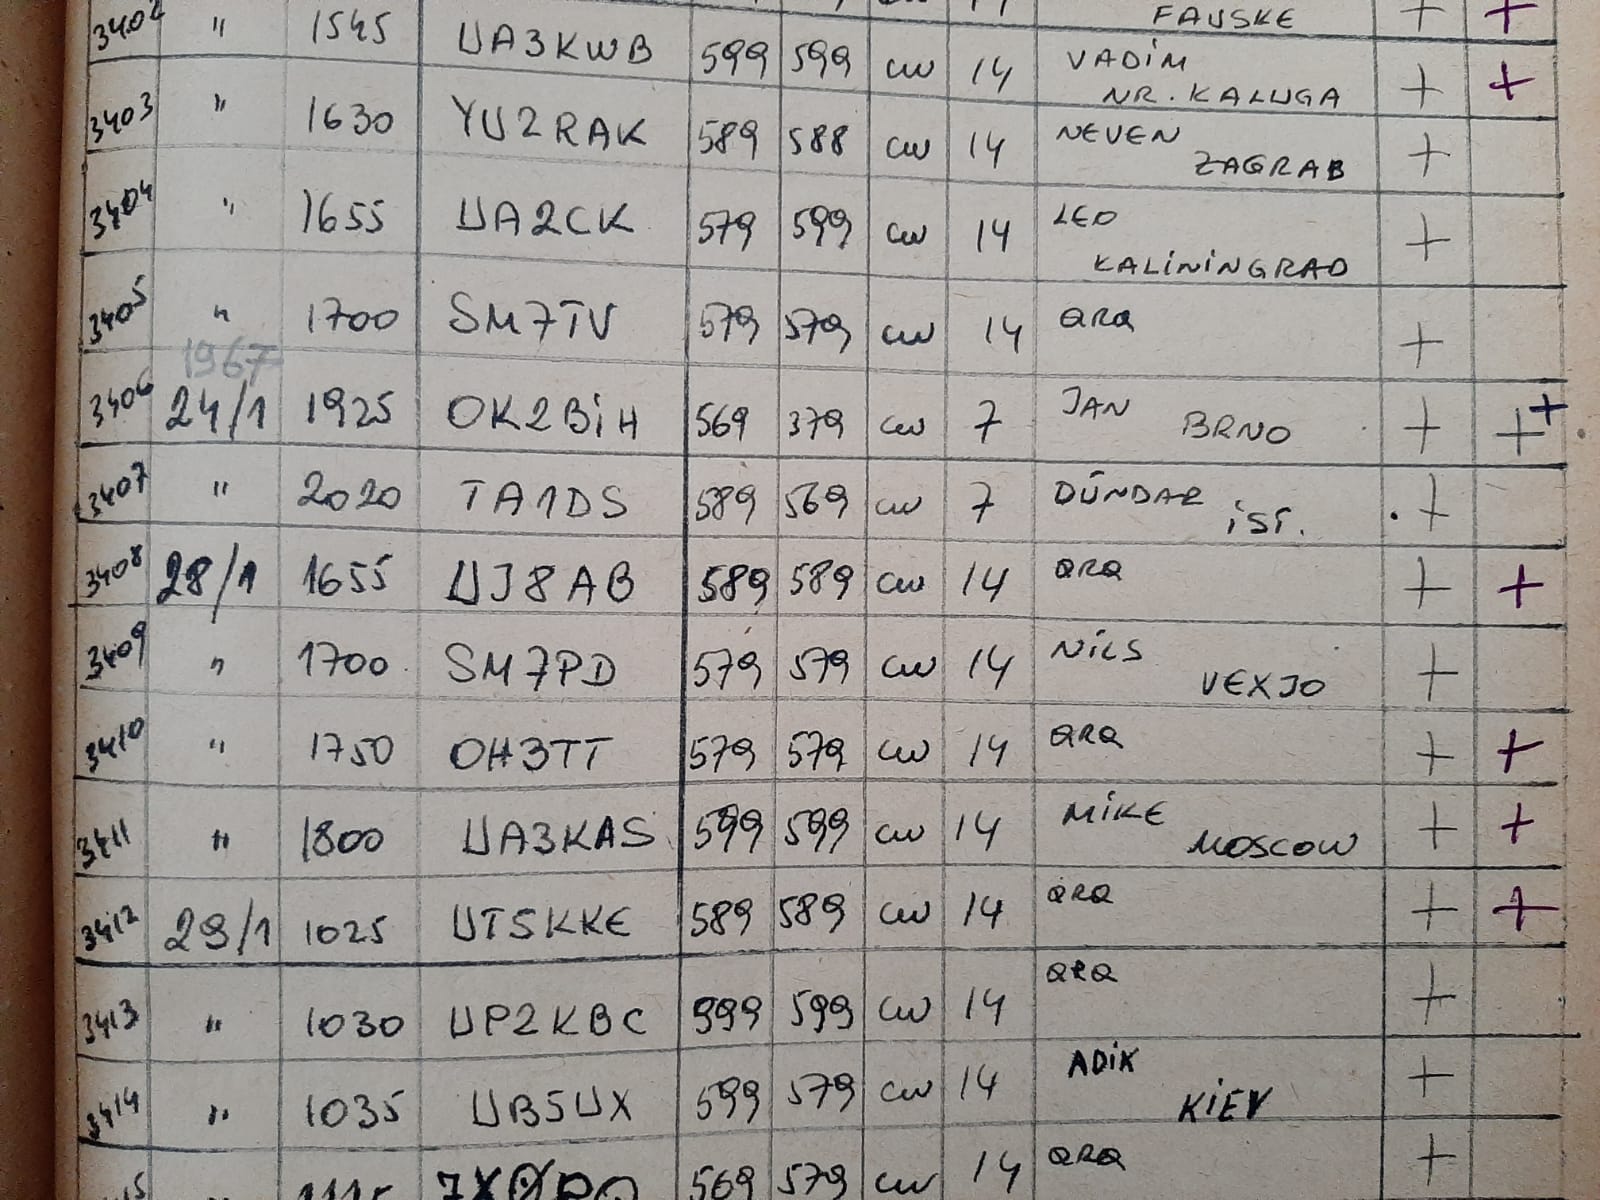 FAUSKE + +
3402 " 1545 UA3KWB 599 599 cw 14 VADIM + +
NR. KALUGA
3403 " 1630 YU2RAK 589 588 cw 14 NEVEN +
ZAGRAB
3404 " 1655 UA2CK 579 599 cw 14 LEO +
KALININGRAD
3405 " 1700 SM7TV 579 579 cw 14 QRQ +
1967
3406 24/1 1925 OK2BiH 569 379 cw 7 JAN BRNO + + +
3407 " 2020 TA1DS 589 569 cw 7 DÜNDAR +
iST.
3408 28/1 1655 UJ8AB 589 589 cw 14 QRQ + +
3409 " 1700 SM7PD 579 579 cw 14 NiLS +
VEXJO
3410 " 1750 OH3TT 579 579 cw 14 QRQ + +
3411 " 1800 UA3KAS 599 599 cw 14 MiKE + +
MOSCOW
3412 29/1 1025 UT5KKE 589 589 cw 14 QRQ + +
3413 " 1030 UP2KBC 599 599 cw 14 QRQ +
3414 " 1035 UB5UX 599 579 cw 14 ADiK +
KiEV
569 579 cw 14 QRQ +